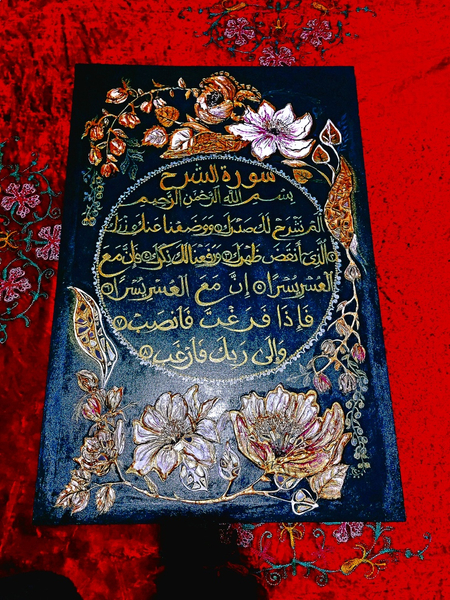 سورة الشرح
بسم الله الرحمن الرحيم
الم نشرح لك صدرك ووضعنا عنك وزرك
الذي أنقض ظهرك ورفعنا لك ذكرك فإن مع
العسر يسرا إن مع العسر يسرا
فإذا فرغت فانصب
وإلى ربك فارغب